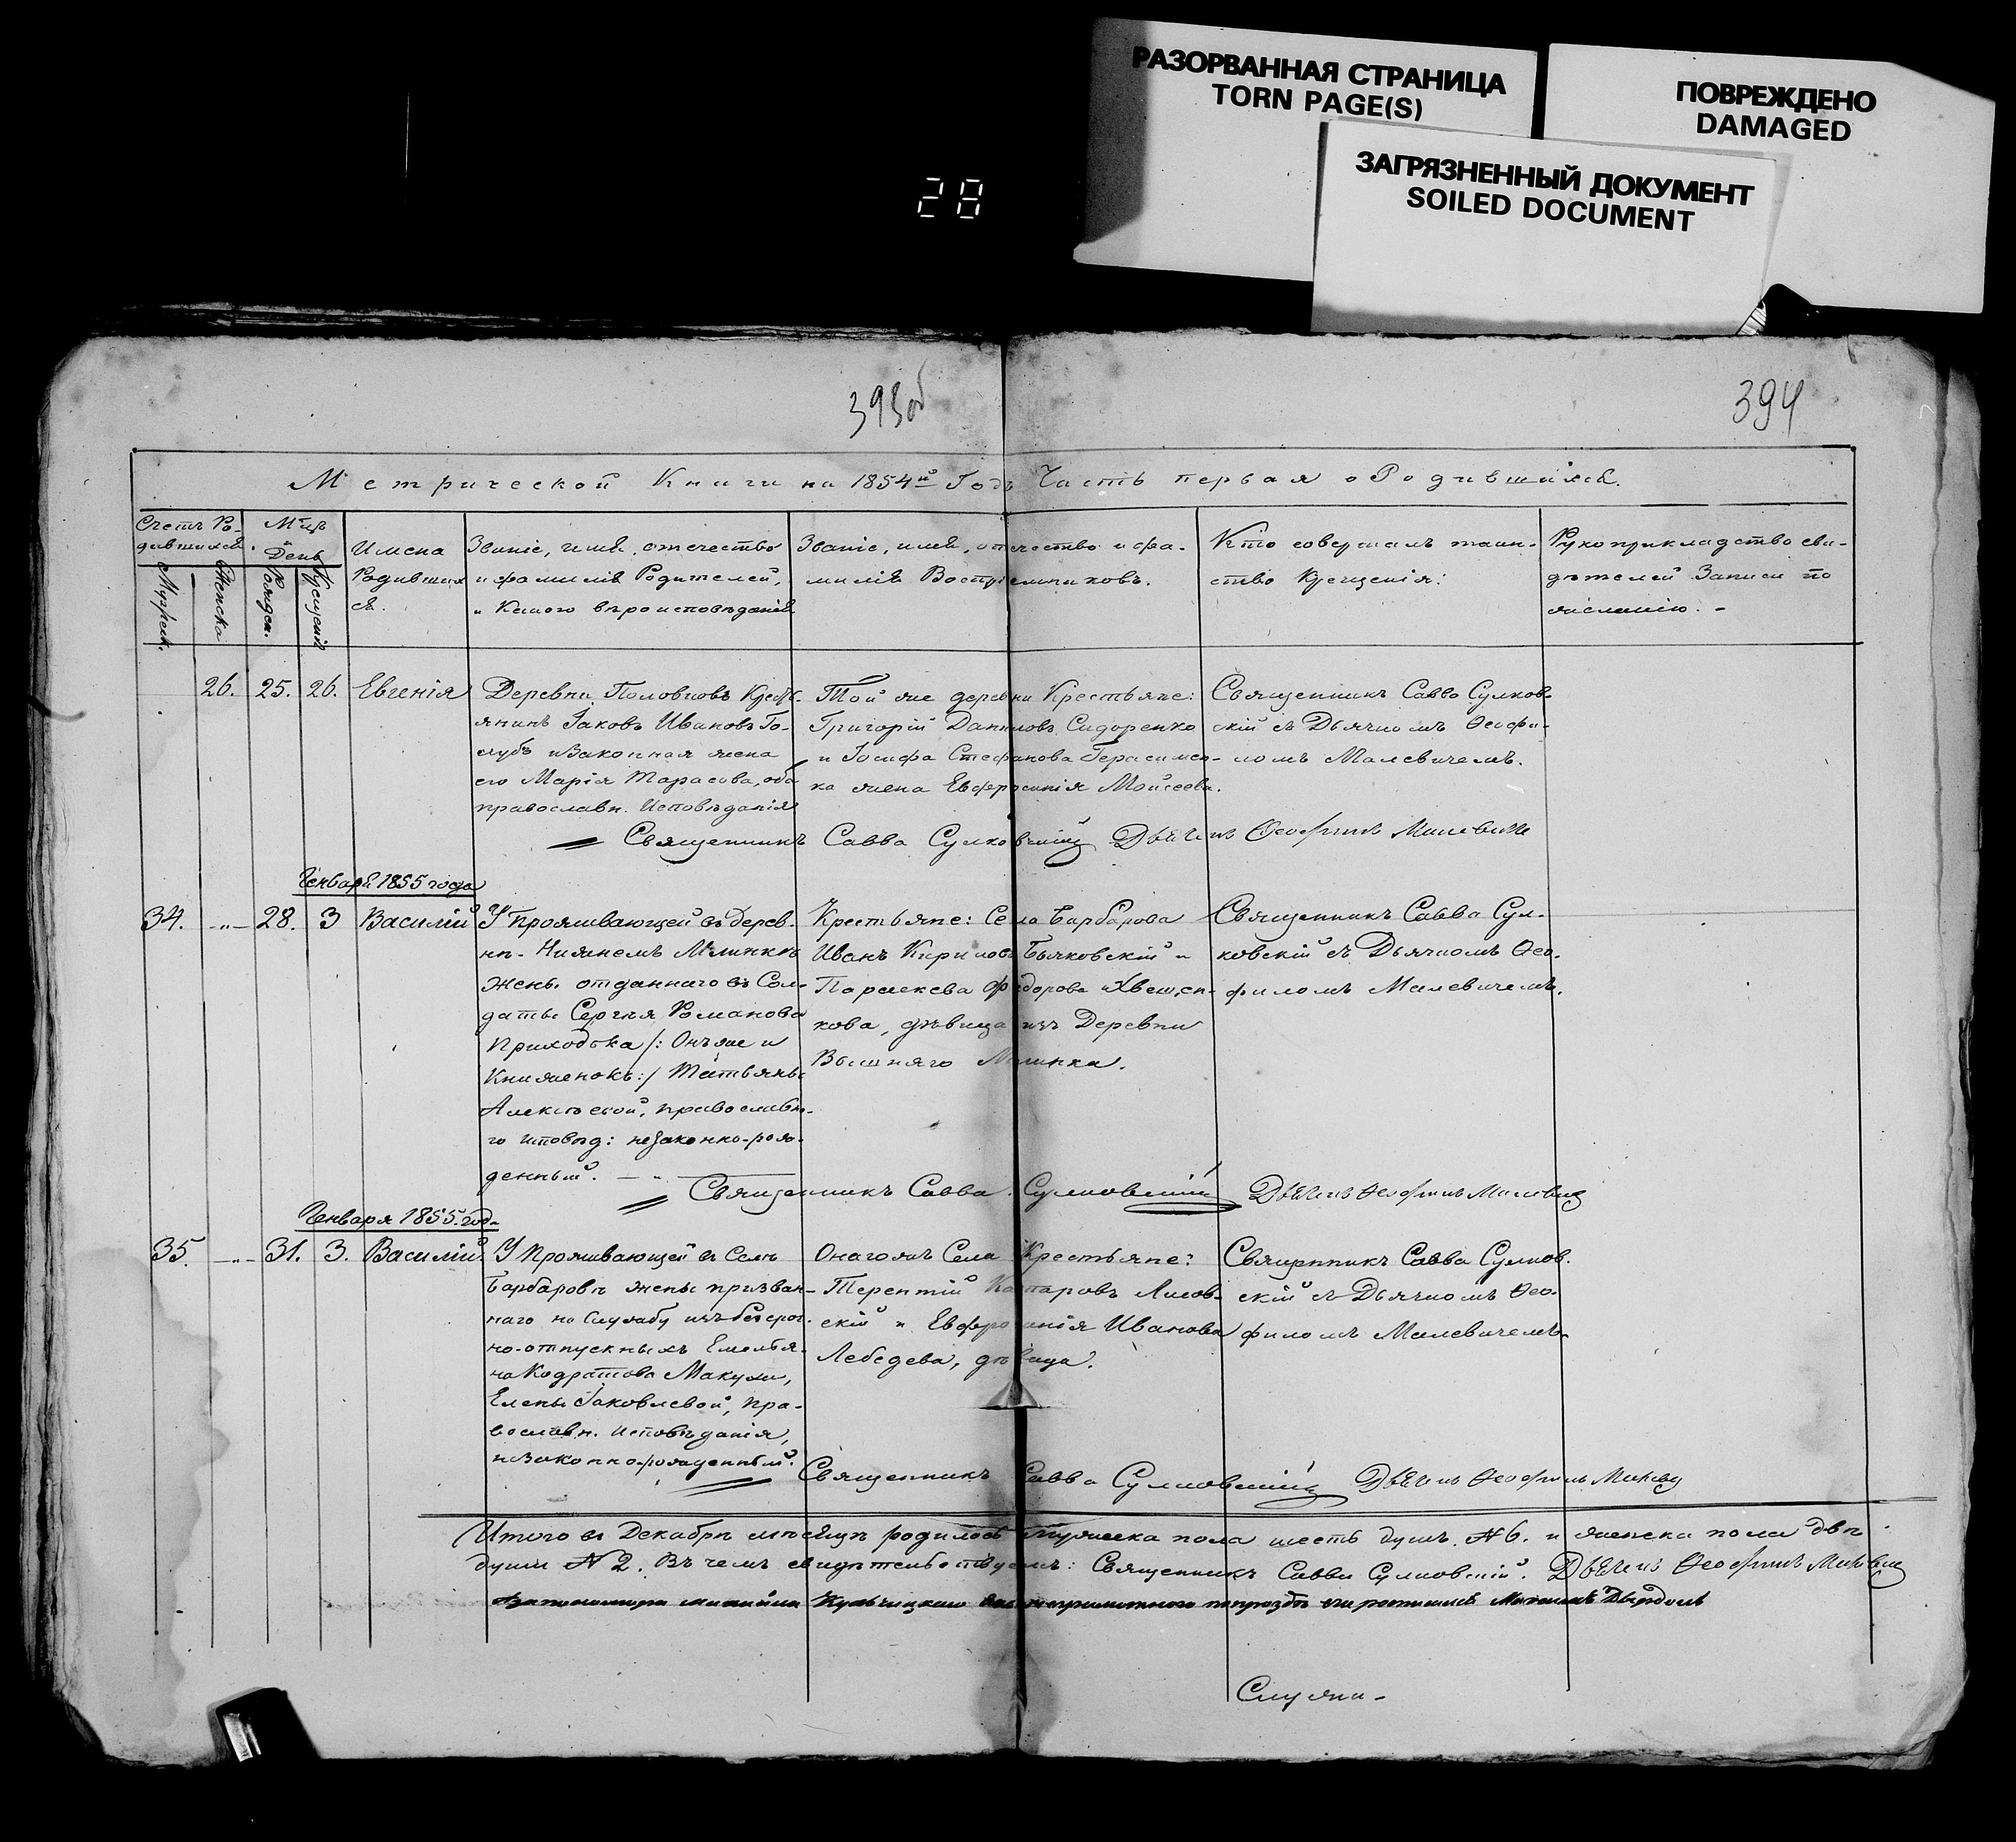 РАЗОРВАННАЯ СТРАНИЦА
TORN PAGE(S)
ПОВРЕЖДЕНО
DAMAGED
ЗАГРЯЗНЕННЫЙ ДОКУМЕНТ
SOILED DOCUMENT
28
393об
394
Метрической Книги на 1854й Годъ Часть первая о Родившихся.
Счетъ Ро-
дившихся.
Мужеск.
Женска
М-цъ
и День
Рожден.
Крещенія
Имена
Родивших
ся.
Званіе, имя, отечество
и фамилія Родителей,
и Какого вѣроисповѣданія
Званіе, имя, отечество и фа-
милія Воспріемниковъ.
Кто совершалъ таин-
ство Крещенія:
Рукоприкладство сви-
дѣтелей Записи по
желанію. -
26. 25. 26. Евгенія
Деревни Половковъ Крест-
янинъ Іаковъ Ивановъ Го-
лубъ и Законная жена
его Марія Тарасова, оба
православн. Исповѣданія
Той же деревни Крестьяне:
Григорій Даниловъ Сидоренко
и Іосифа Стефанова Герасимен-
ка жена Евфросинія Моисеева.
Священникъ Савва Сулков-
скій съ Дьячкомъ Ѳеофи-
ломъ Малевичемъ.
Священникъ Савва Сулковскій Дьячекъ Ѳеофилъ Малевичъ
Генваря 1855 года
34. -"- 28. 3 Василій
У Проживающей въ дерев-
нѣ Нижнемъ Млинкѣ
жены отданнаго въ Сол-
даты Сергѣя Романова
Приходька /: Онъ же и
Княженокъ:/ Татьяны
Алексѣевой, православн-
го исповѣд: незаконно-рож-
денный. — " —
Крестьяне: Села Барбарова
Иванъ Кириловъ Бычковскій и
Параскева Федорова
кова, дѣвица изъ Деревни
Вышняго Млинка.
Священникъ Савва Сул-
ковскій съ Дьячкомъ Ѳео-
филомъ Малевичемъ.
Священникъ Савва Сулковскій Дьячекъ Ѳеофилъ Малевичъ
Генваря 1855. года
35. -"- 31. 3. Василій.
У Проживающей въ Селѣ
Барбаровѣ жены призван-
наго на Службу изъ безсроч-
но-отпускныхъ Емелья-
на Кодратова Макухи,
Елены Іаковлевой, пра-
вославн. Исповѣданія,
незаконнорожденный.
Онагожъ Села Крестьяне:
Терентій Лисов-
скій и Евфросинія Иванова
Лебедева, дѣвица.
Священникъ Савва Сулков-
скій съ Дьячкомъ Ѳео-
филомъ Малевичемъ
Священникъ Савва Сулковскій Дьячекъ Ѳеофилъ
Итого въ Декабрѣ мѣсяцѣ родилось мужеска пола шесть душъ № 6. и женска пола двѣ
души № 2. Въ чемъ свидѣтельствуемъ: Священникъ Савва Сулковскій. Дьячекъ Ѳеофилъ Малевичъ